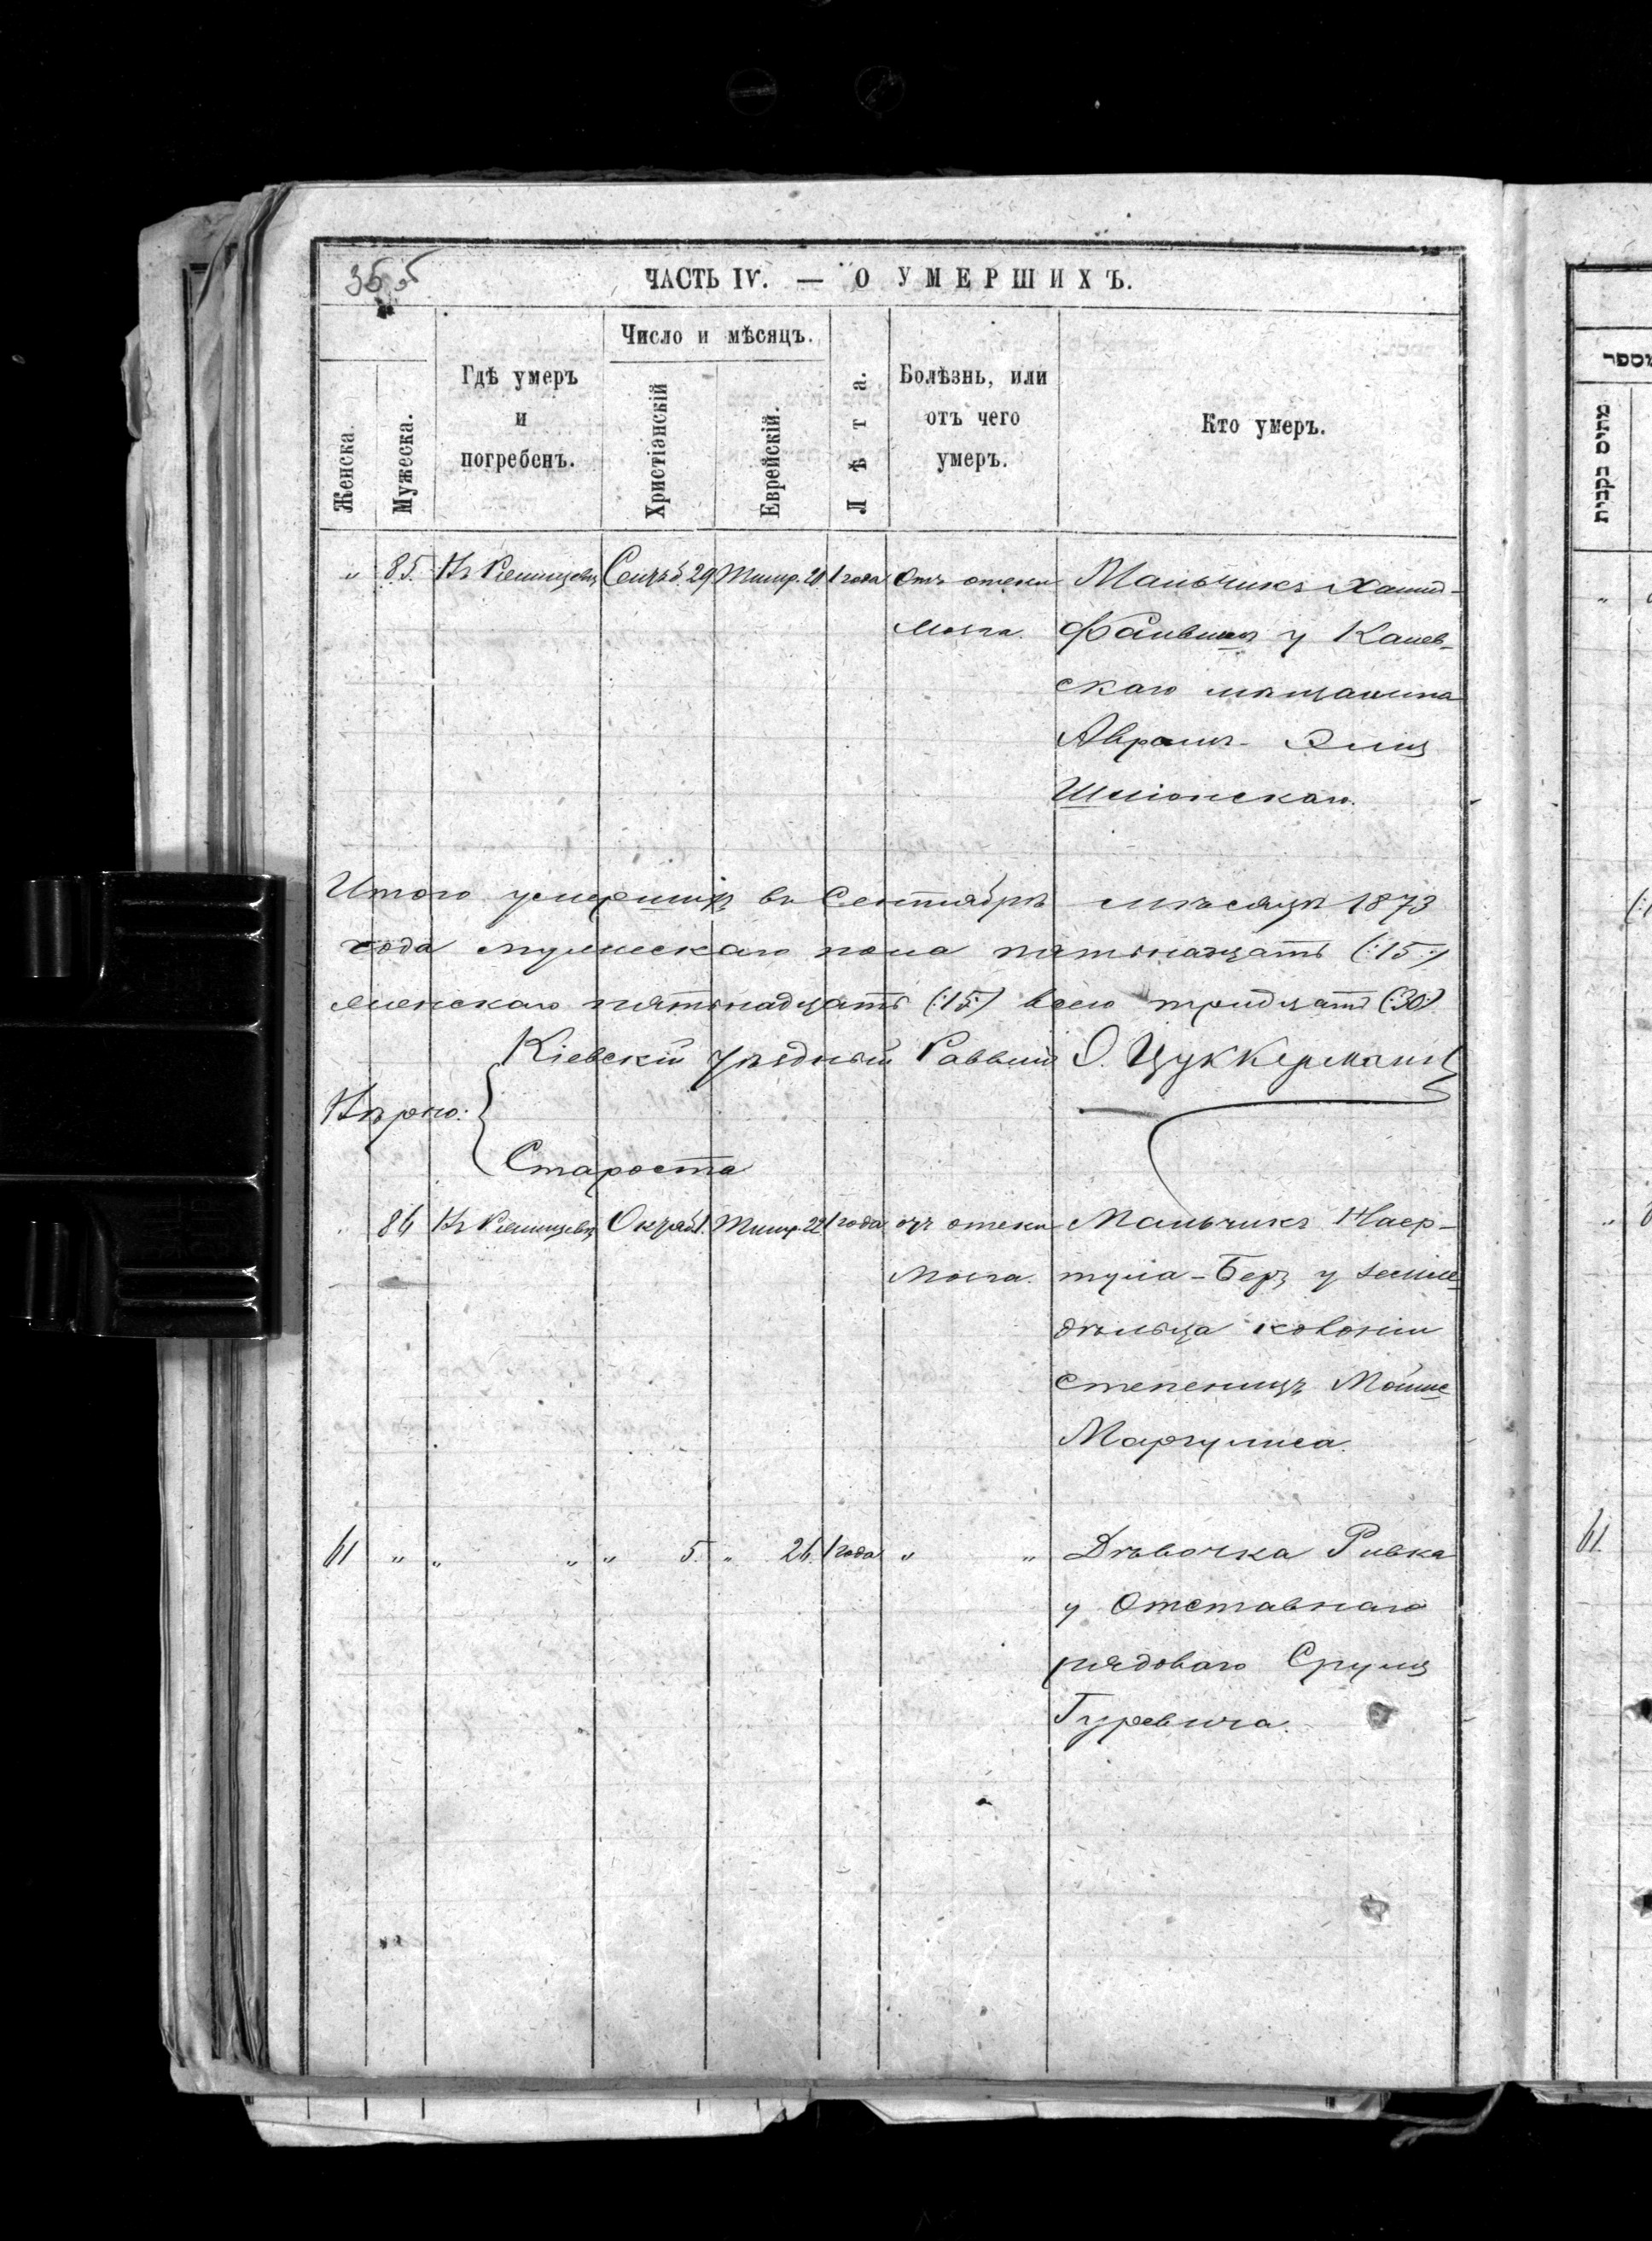 35 об.
ЧАСТЬ IV. — О УМЕРШИХЪ.
Женска.
Мужеска.
Гдѣ умеръ
и
погребенъ.
Число и мѣсяцъ.
Христіанскій
Еврейскій.
Лѣта.
Болѣзнь, или
отъ чего
умеръ.
Кто умеръ.
„ 85. Въ Ржищевѣ Сентяб. 29 Тишр. 20. 1 года Отъ отеки Мальчикъ
мозга. Файвишъ у Канев-
скаго мѣщанина
Аврамъ- Элиц
Шпіонскаго.
Итого умершихъ въ Сентябрѣ мѣсяцѣ 1873
года мужескаго пола пятьнадцать (:15:)
женскаго пятьнадцать (:15:) всего тридцать (:30:)
Кіевскій уѣздный Раввинъ О. Цуккерманъ
Вѣрно:
Староста
„ 86 Въ Ржищевѣ Октяб. 1. Тишр. 22 1 года отъ отеки Мальчикъ
мозга. тула-Беръ у землe-
дѣльца колоніи
Степеницъ Мойше
Маргулиса.
61 „ „ „ „ 5. „ 26. 1 года „ „ Дѣвочка Ривка
у Отставнаго
рядоваго Сруля
Гуревича.
מספר
מתים נקבות
61.